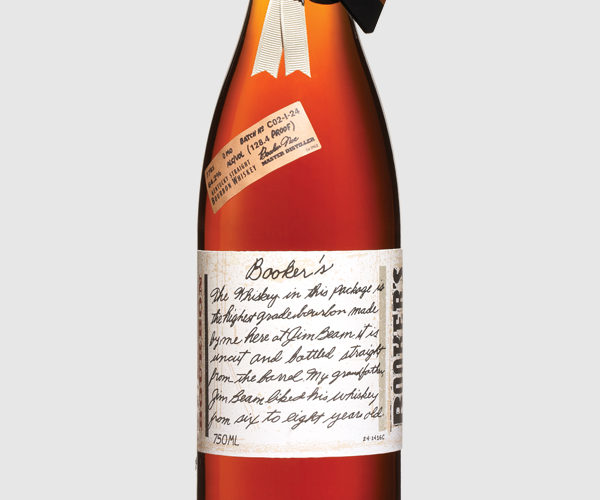 MO BATCH Nº C02-I-24
64.2% ALC/VOL (128.4 PROOF)
KENTUCKY STRAIGHT
BOURBON WHISKEY
Booker Noe
MASTER DISTILLER
Booker's
The Whiskey in this package is
the highest grade bourbon made
by me here at Jim Beam it is
uncut and bottled straight
from the barrel. My grandfather,
Jim Beam liked his whiskey
from six to eight years old.
750ML
BOOKER'S